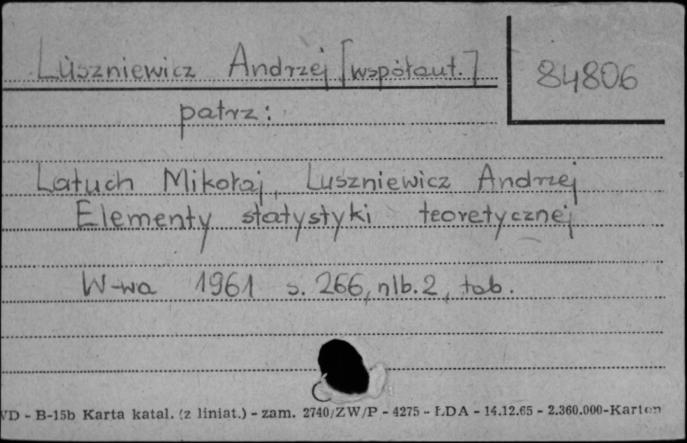 Luszniewicz Andrzej [współaut.]
84806
patrz:
Latuch Mikołaj, Luszniewicz Andrzej
Elementy statystyki teoretycznej
W-wa 1961 s. 266, nlb. 2, tab.
WD - B-15b Karta katal. (z liniat.) - zam. 2740/ZW/P - 4275 - ŁDA - 14.12.65 - 2.360.000-Karton